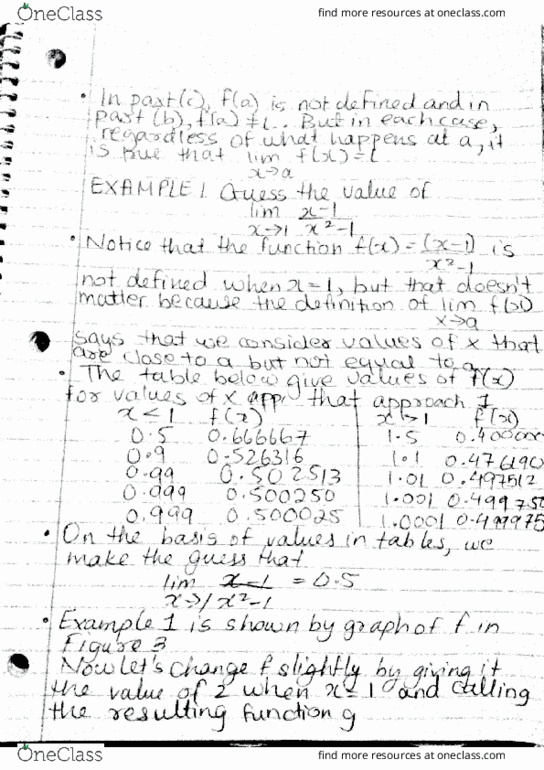 OneClass
find more resources at oneclass.com
• In part(c), f(a) is not defined and in
part (b), f(a) ≠ L. But in each case,
regardless of what happens at a, it
is true that lim f(x) = L
x→a
EXAMPLE 1. Guess the value of
lim x-1
x→1 x²-1
• Notice that the function f(x) = (x-1) is
x²-1
not defined when x = 1, but that doesn't
matter because the definition of lim f(x)
x→a
says that we consider values of x that
are close to a but not equal to a.
• The table below give values of f(x)
for values of x app. that approach 1
x < 1 f(x) x > 1 f(x)
0.5 0.666667 1.5 0.400000
0.9 0.526316 1.1 0.476190
0.99 0.502513 1.01 0.497512
0.999 0.500250 1.001 0.499750
0.999 0.500025 1.0001 0.499975
• On the basis of values in tables, we
make the guess that
lim x-1 = 0.5
x→1 x²-1
• Example 1 is shown by graph of f in
Figure 3
Now let's change f slightly by giving it
the value of 2 when x = 1 and calling
the resulting function g
OneClass
find more resources at oneclass.com